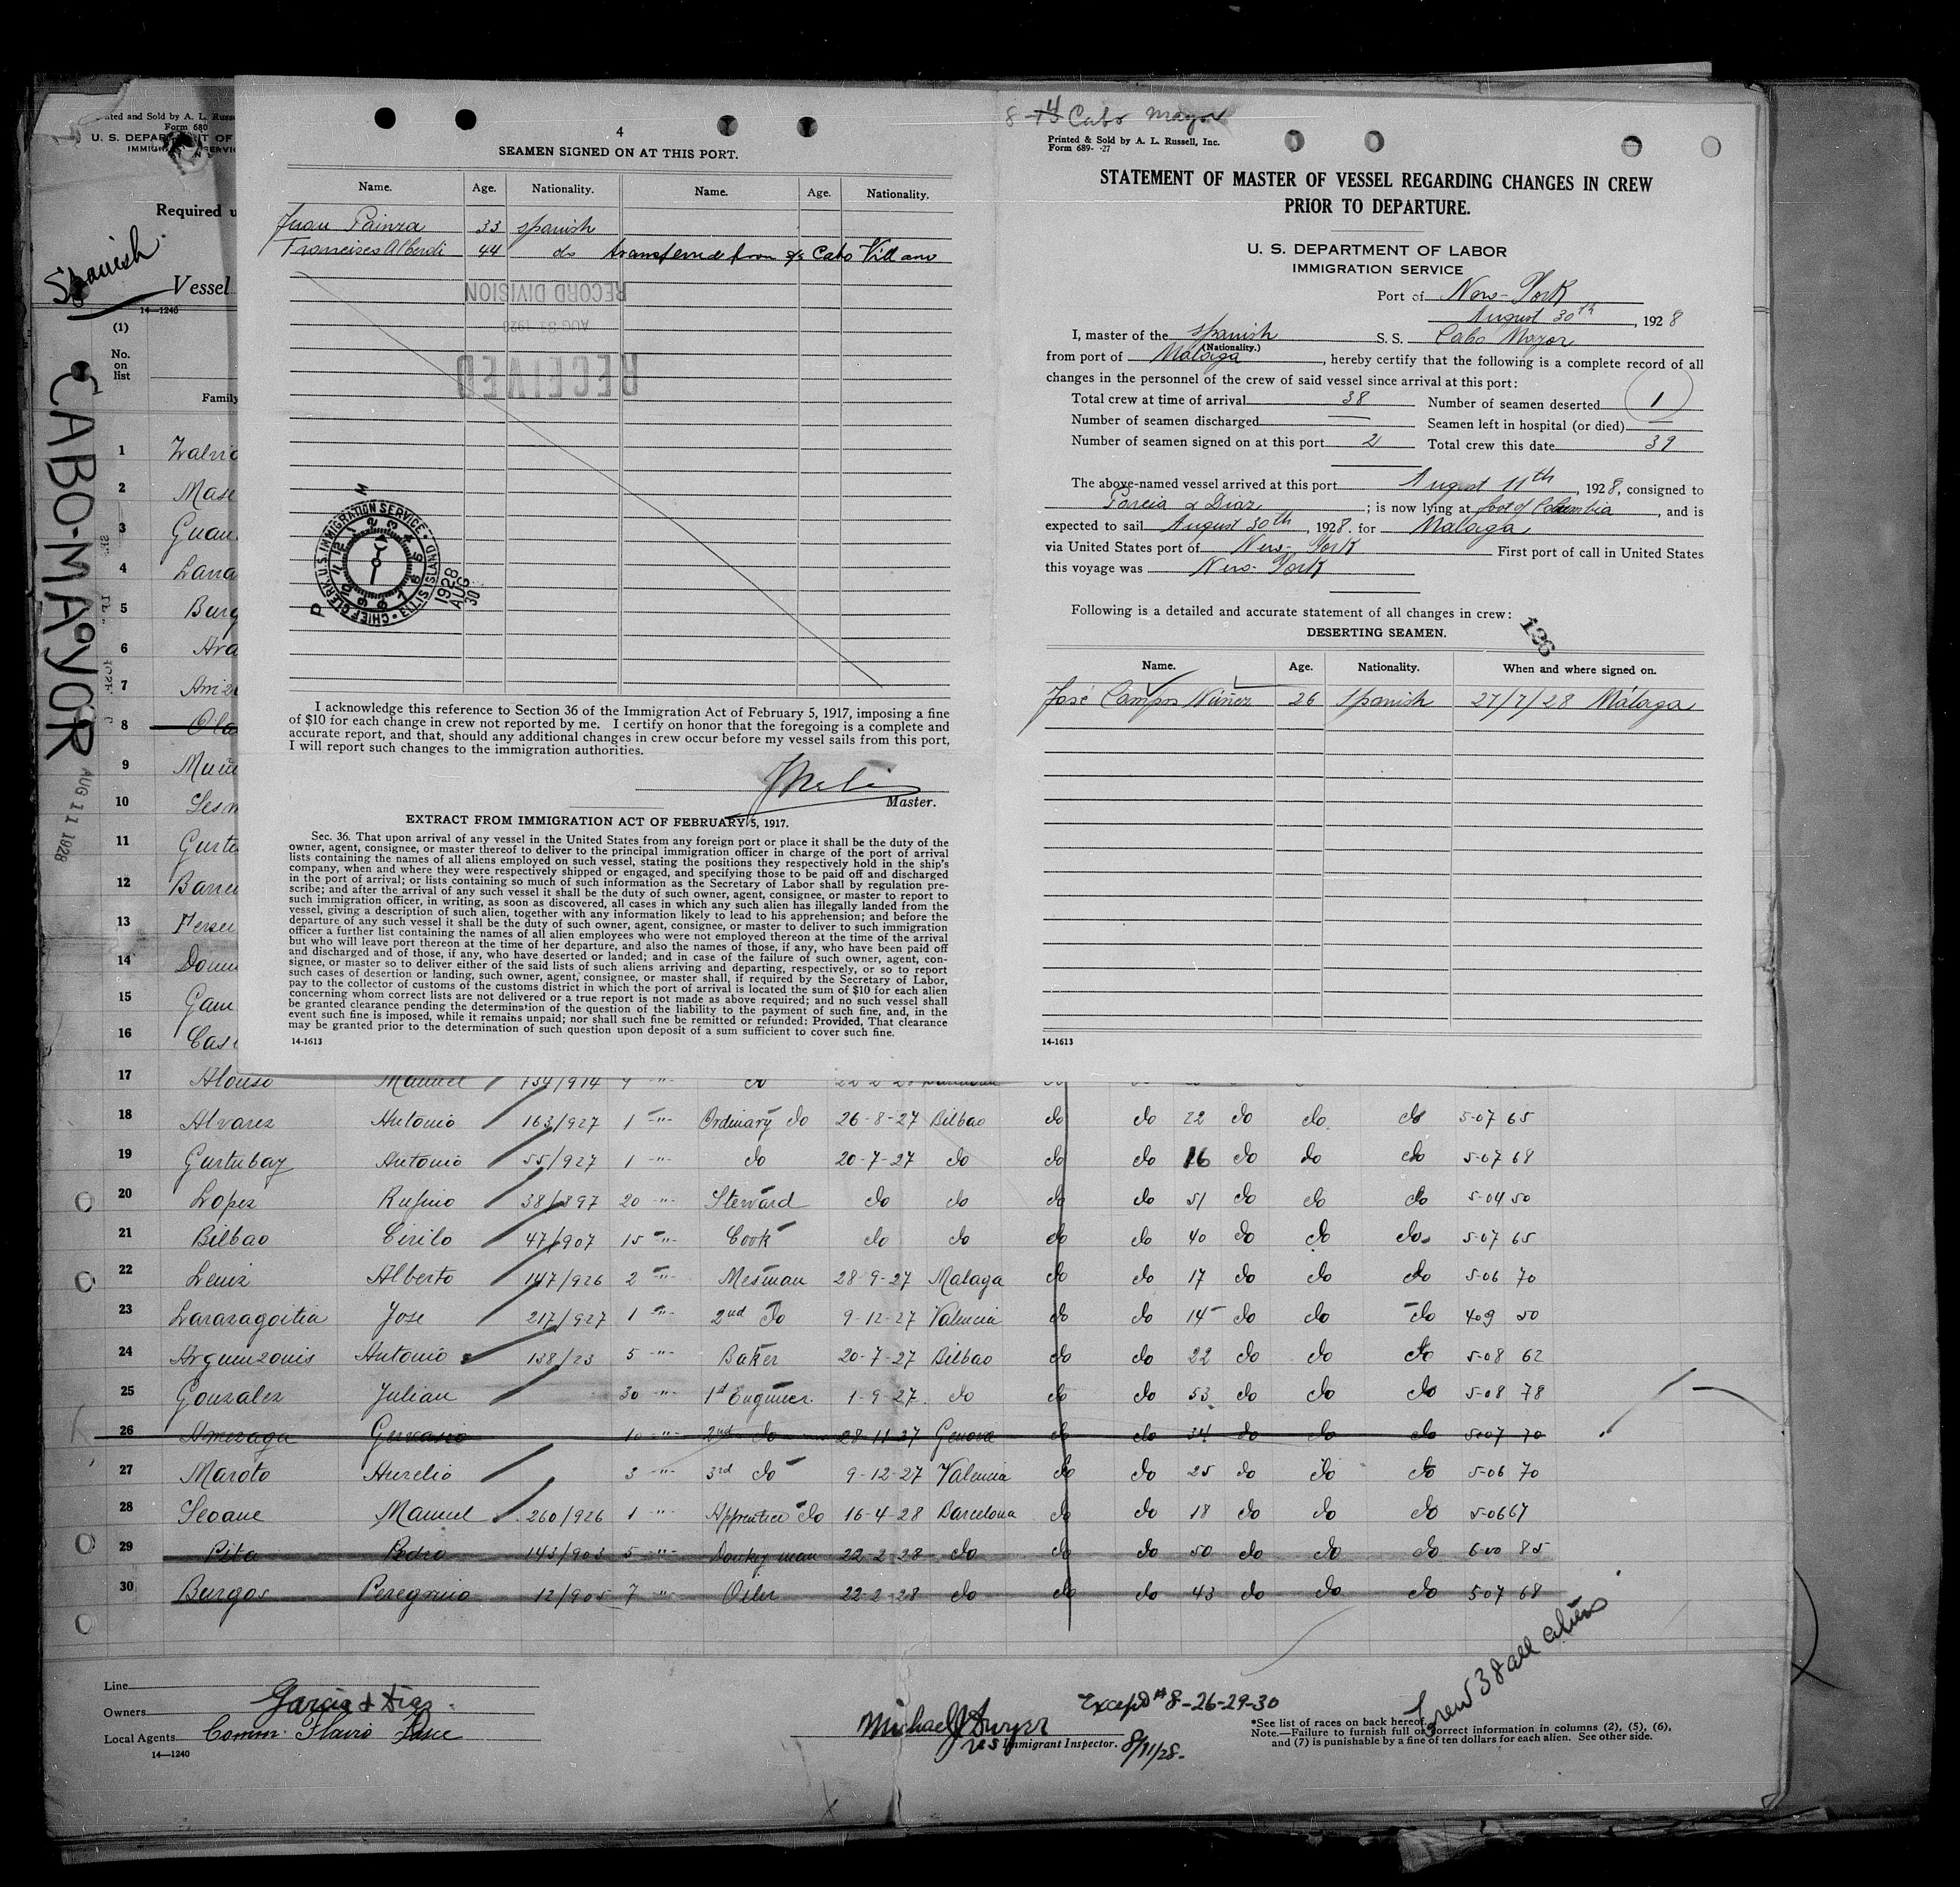 4
SEAMEN SIGNED ON AT THIS PORT.
Name. Age. Nationality. Name. Age. Nationality.
Juan Painza 33 spanish
Francisco Alberdi 44 do transferred from s/s Cabo Villano
RECORD DIVISION
AUG 31 1928
RECEIVED
CHIEF CLERK, U.S. IMMIGRATION SERVICE · ELLIS ISLAND
1928 AUG 30
I acknowledge this reference to Section 36 of the Immigration Act of February 5, 1917, imposing a fine
of $10 for each change in crew not reported by me. I certify on honor that the foregoing is a complete and
accurate report, and that, should any additional changes in crew occur before my vessel sails from this port,
I will report such changes to the immigration authorities.
Master.
EXTRACT FROM IMMIGRATION ACT OF FEBRUARY 5, 1917.
Sec. 36. That upon arrival of any vessel in the United States from any foreign port or place it shall be the duty of the
owner, agent, consignee, or master thereof to deliver to the principal immigration officer in charge of the port of arrival
lists containing the names of all aliens employed on such vessel, stating the positions they respectively hold in the ship's
company, when and where they were respectively shipped or engaged, and specifying those to be paid off and discharged
in the port of arrival; or lists containing so much of such information as the Secretary of Labor shall by regulation pre-
scribe; and after the arrival of any such vessel it shall be the duty of such owner, agent, consignee, or master to report to
such immigration officer, in writing, as soon as discovered, all cases in which any such alien has illegally landed from the
vessel, giving a description of such alien, together with any information likely to lead to his apprehension; and before the
departure of any such vessel it shall be the duty of such owner, agent, consignee, or master to deliver to such immigration
officer a further list containing the names of all alien employees who were not employed thereon at the time of the arrival
but who will leave port thereon at the time of her departure, and also the names of those, if any, who have been paid off
and discharged and of those, if any, who have deserted or landed; and in case of the failure of such owner, agent, con-
signee, or master so to deliver either of the said lists of such aliens arriving and departing, respectively, or so to report
such cases of desertion or landing, such owner, agent, consignee, or master shall, if required by the Secretary of Labor,
pay to the collector of customs of the customs district in which the port of arrival is located the sum of $10 for each alien
concerning whom correct lists are not delivered or a true report is not made as above required; and no such vessel shall
be granted clearance pending the determination of the question of the liability to the payment of such fine, and, in the
event such fine is imposed, while it remains unpaid; nor shall such fine be remitted or refunded: Provided, That clearance
may be granted prior to the determination of such question upon deposit of a sum sufficient to cover such fine.
14-1613
Cabo Mayor
Printed & Sold by A. L. Russell, Inc.
Form 689- -27
STATEMENT OF MASTER OF VESSEL REGARDING CHANGES IN CREW
PRIOR TO DEPARTURE.
U. S. DEPARTMENT OF LABOR
IMMIGRATION SERVICE
Port of New-York
August 30th, 1928
I, master of the spanish S. S. Cabo Mayor
(Nationality.)
from port of Malaga, hereby certify that the following is a complete record of all
changes in the personnel of the crew of said vessel since arrival at this port:
Total crew at time of arrival 38 Number of seamen deserted 1
Number of seamen discharged — Seamen left in hospital (or died) —
Number of seamen signed on at this port 2 Total crew this date 39
The above-named vessel arrived at this port August 11th, 1928, consigned to
Garcia & Diaz; is now lying at foot of Columbia, and is
expected to sail August 30th, 1928. for Malaga
via United States port of New-York First port of call in United States
this voyage was New-York
Following is a detailed and accurate statement of all changes in crew:
DESERTING SEAMEN.
Name. Age. Nationality. When and where signed on.
José Campos Núñez 26 spanish 27/7/28 Málaga
14-1613
Form 680
Required u
Spanish
Vessel
14—1240
(1)
No. on list
Family
CABO-MAYOR
AUG 11 1928
1
2 Mase
3 Guan
4 Larra
5 Burg
6 Ara
7
8 Ola
9
10
11
12
13
14
15 Gam
16 Cast
17 Alonso Manuel 134/914
18 Alvarez Antonio 163/927 1 -"- Ordinary do 26-8-27 Bilbao do do 22 do do do 5-07 65
19 Gurtubay Antonio 55/927 1 -"- do 20-7-27 do do do 16 do do do 5-07 68
20 Lopez Rufino 38/897 20 -"- Steward do do do do 51 do do do 5-04 50
21 Bilbao Cirilo 47/907 15 -"- Cook do do do do 40 do do do 5-07 65
22 Leniz Alberto 147/926 2 -"- Mesman 28-9-27 Malaga do do 17 do do do 5-06 70
23 Lararagoitia Jose 217/927 1 -"- 2nd do 9-12-27 Valencia do do 14 do do do 409 50
24 Arguinzonis Antonio 138/23 5 -"- Baker 20-7-27 Bilbao do do 22 do do do 5-08 62
25 Gonzalez Julian 30 -"- 1st Engineer. 1-9-27. do do do 53 do do do 5-08 78
26 Amezaga Gervasio 10 -"- 2nd do 28-11-27 Genova do do 34 do do do 5-07 70
27 Maroto Aurelio 3 -"- 3rd do 9-12-27 Valencia do do 25 do do do 5-06 70
28 Seoane Manuel 260/926 1 -"- Apprentice do 16-4-28 Barcelona do do 18 do do do 5-06 67
29 Pita Pedro 143/903 5 -"- Donkey man 22-2-28 do do do 50 do do do 6-00 85
30 Burgos Peregrino 12/905 7 -"- Oiler 22-2-28 do do do 43 do do do 5-07 68
Crew 38 all aliens
Line
Owners Garcia & Diaz.
Local Agents Comm. Flavio
14—1240
Except # 8-26-29-30
Michael J Dwyer
Immigrant Inspector. 8/11/28.
*See list of races on back hereof.
Note.—Failure to furnish full or correct information in columns (2), (5), (6),
and (7) is punishable by a fine of ten dollars for each alien. See other side.